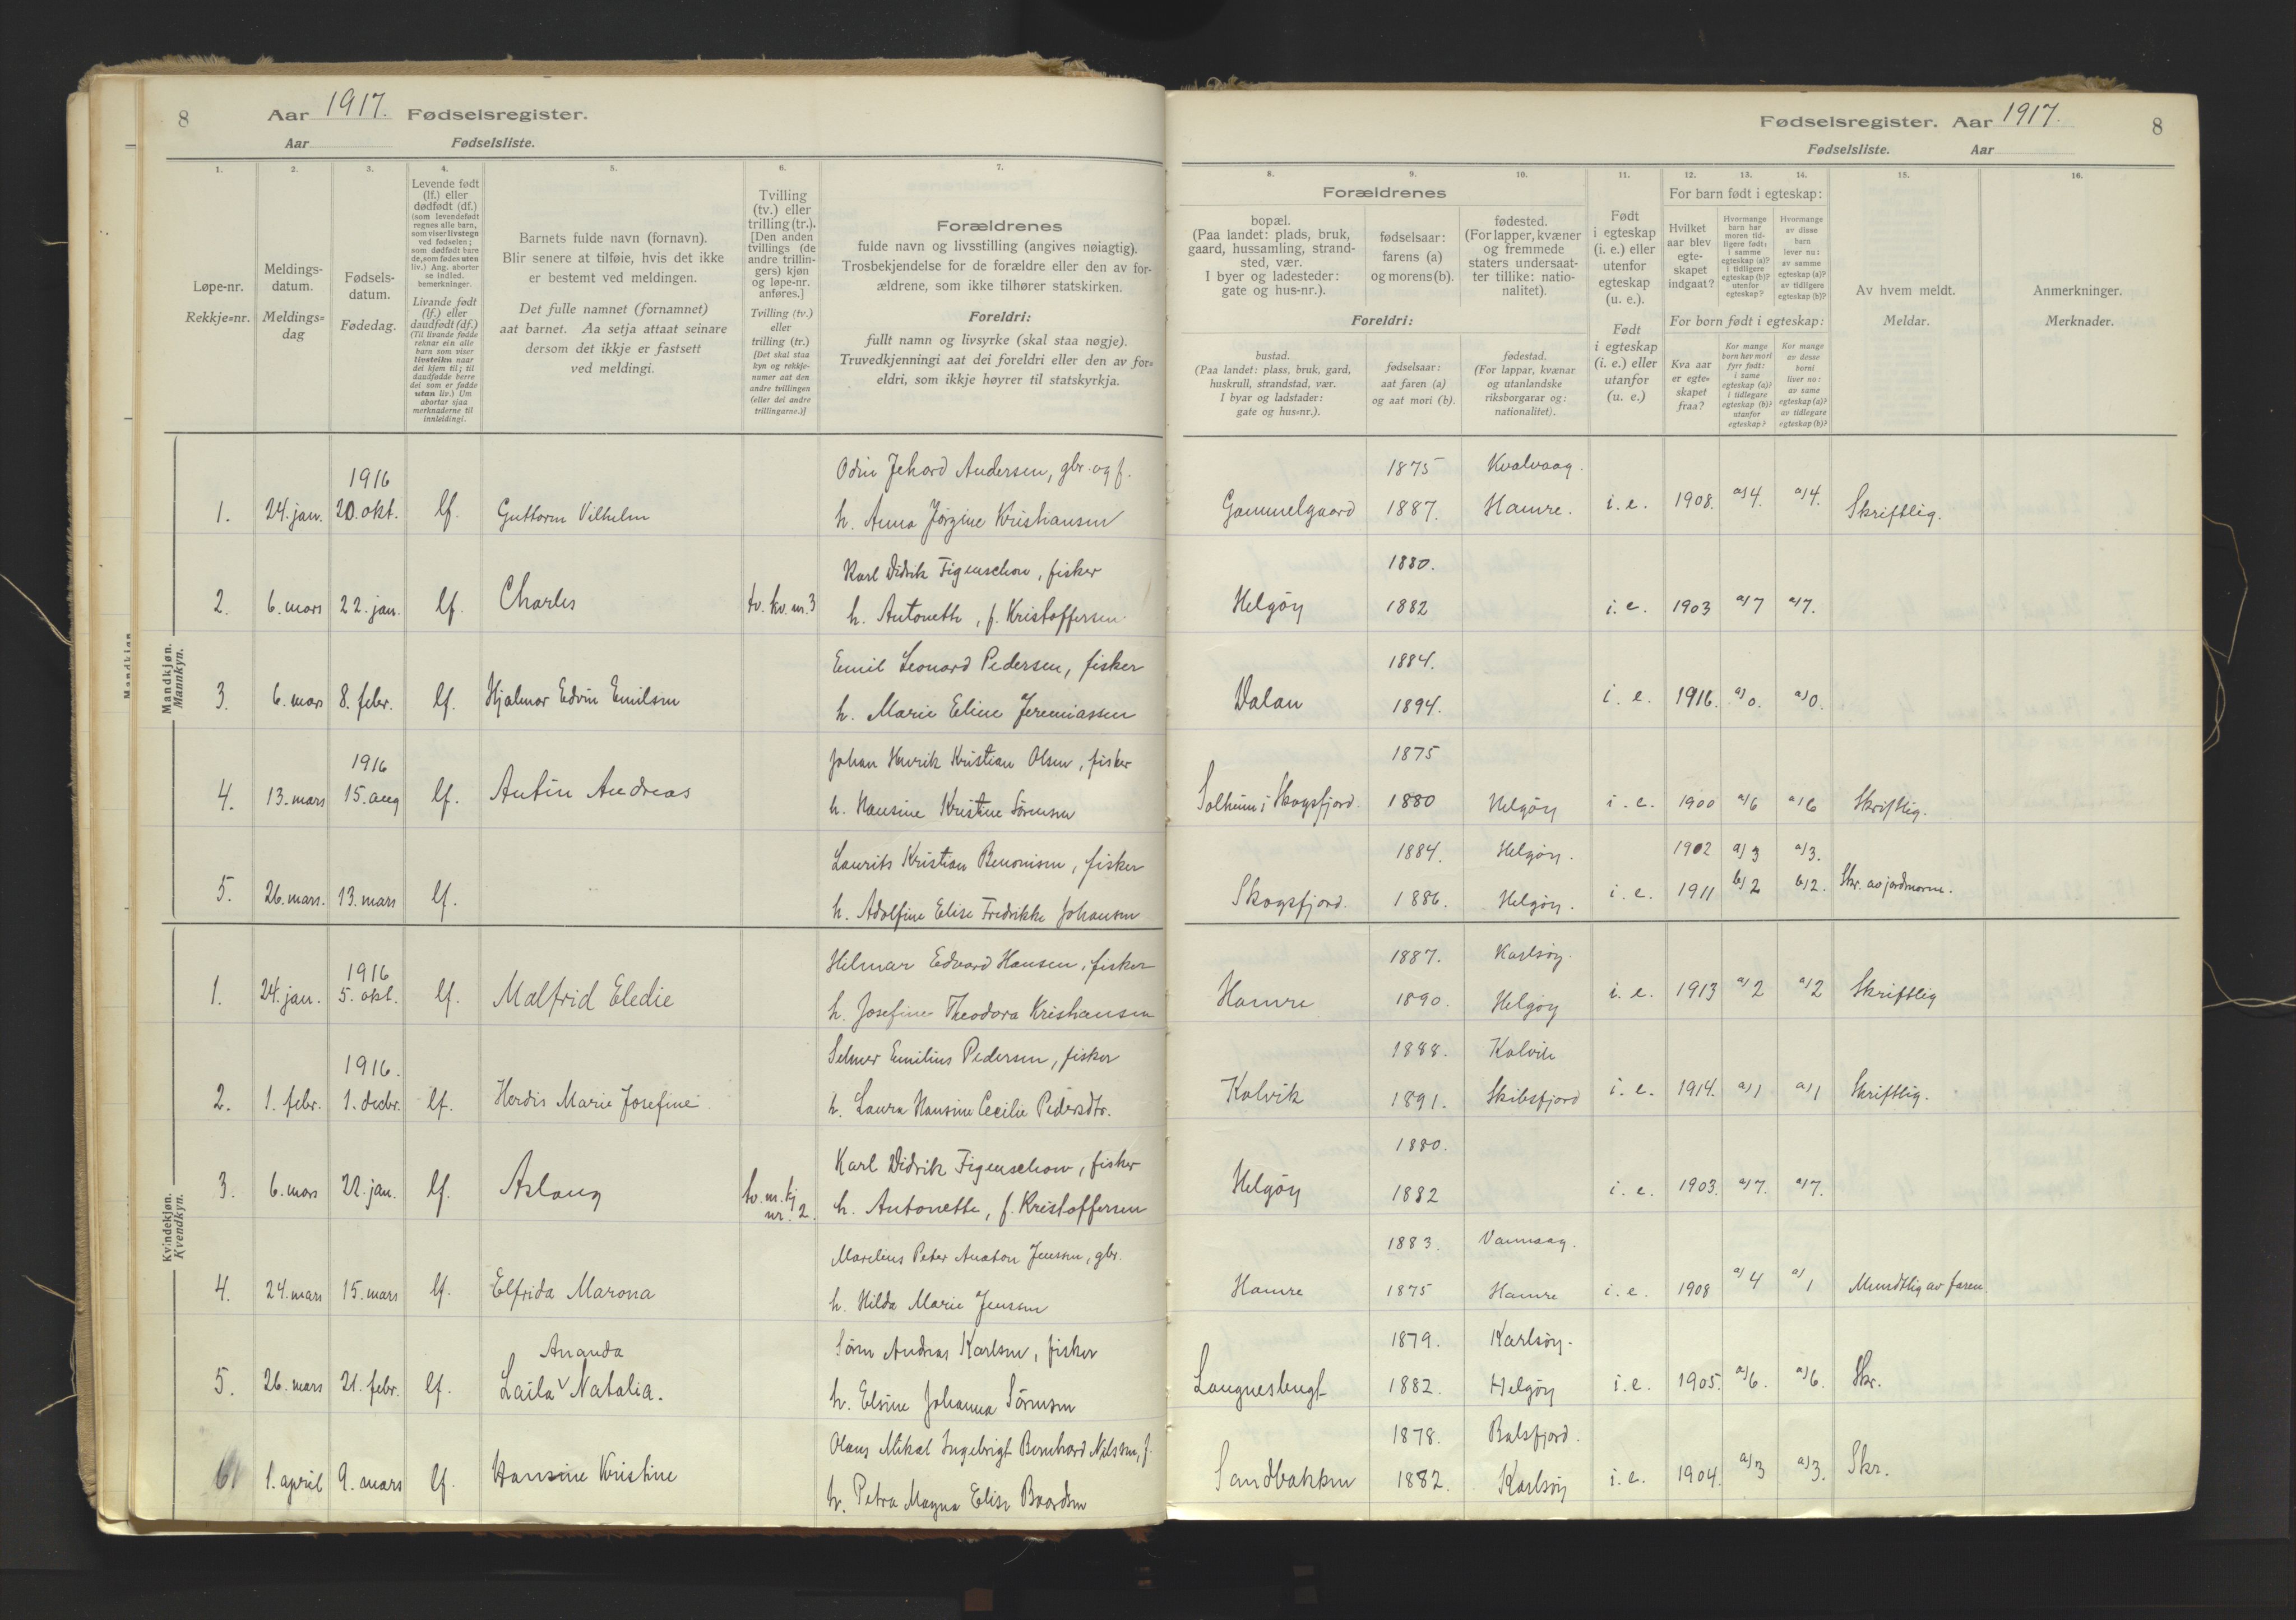 8
Aar 1917. Fødselsregister.
Aar Fødselsliste.
1.
2.
3.
4.
5.
6.
7.
Løpe-nr.
Rekkje=nr.
Meldings-
datum.
Meldings=
dag
Fødsels-
datum.
Fødedag.
Levende født
(lf.) eller
dødfødt (df.)
(som levendefødt
regnes alle barn,
som viser livstegn
ved fødselen;
som dødfødt bare
de, som fødes uten
liv.) Ang. aborter
se indled.
bemerkninger.
Livande født
(lf.) eller
daudfødt (df.)
(Til livande fødde
reknar ein alle
barn som viser
livsteikn naar
dei kjem til; til
daudfødde berre
dei som er fødde
utan liv.) Um
abortar sjaa
merknaderne til
innleidingi.
Barnets fulde navn (fornavn).
Blir senere at tilføie, hvis det ikke
er bestemt ved meldingen.
Det fulle namnet (fornamnet)
aat barnet. Aa setja attaat seinare
dersom det ikkje er fastsett
ved meldingi.
Tvilling
(tv.) eller
trilling (tr.).
[Den anden
tvillings (de
andre trillin-
gers) kjøn
og løpe-nr.
anføres.]
Tvilling (tv.)
eller
trilling (tr.)
[Det skal staa
kyn og rekkje-
numer aat den
andre tvillingen
(eller dei andre
trillingarne.)]
Forældrenes
fulde navn og livsstilling (angives nøiagtig).
Trosbekjendelse for de forældre eller den av for-
ældrene, som ikke tilhører statskirken.
Foreldri:
fullt namn og livsyrke (skal staa nøgje).
Truvedkjenningi aat dei foreldri eller den av for=
eldri, som ikkje høyrer til statskyrkja.
Mandkjøn.
Mannkyn.
1916 Odin Jehard Andersen, gbr. og f.
1. 24. jan. 20. okt. lf. Guttorm Vilhelm h. Anna Jørgine Kristiansen
Karl Didrik Figenschou, fisker
2. 6. mars 22. jan. lf. Charles tv. kv. nr. 3 h. Antonette, f. Kristoffersen
Emil Leonard Pedersen, fisker
3. 6. mars 8. febr. lf. Hjalmar Edvin Emilsen h. Marie Eline Jeremiassen
1916 Johan Henrik Kristian Olsen, fisker
4. 13. mars 15. aug lf. Antin Andreas h. Hansine Kristine Sørensen
Laurits Kristian Benonisen, fisker
5. 26. mars. 13. mars lf. h. Adolfine Elise Fredrikke Johansen
Kvindekjøn.
Kvendkyn.
1916 Hilmar Edvard Hansen, fisker
1. 24. jan. 5. okt. lf. Malfrid Eledie h. Josefine Theodora Kristiansen
1916. Selmer Emilius Pedersen, fisker
2. 1. febr. 1. decbr. lf. Herdis Marie Josefine h. Laura Hansine Cecilie Pedersdtr.
Karl Didrik Figenschou, fisker
3. 6. mars 22. jan. lf. Aslaug tv. m. kj nr. 2. h. Antonette, f. Kristoffersen
Marelius Peter Anaton Jenssen, gbr.
4. 24. mars 15. mars lf. Elfrida Marona h. Hilda Marie Jenssen
Ananda Søren Andreas Karlsen, fisker
5. 26. mars 21. febr. lf. Laila Natalia. h. Elsine Johanna Sørensen
Olaus Mikal Ingebrigt Bernhard Nilssen, f.
6 1. april 9. mars lf. Hansine Kristine h. Petra Magna Elise Baardsen
Fødselsregister. Aar 1917. 8
Fødselsliste. Aar
8.
9.
10.
11.
12.
13.
14.
15.
16.
Forældrenes
bopæl.
(Paa landet: plads, bruk,
gaard, hussamling, strand-
sted, vær.
I byer og ladesteder:
gate og hus-nr.).
fødselsaar:
farens (a)
og morens (b).
fødested.
(For lapper, kvæner
og fremmede
staters undersaat-
ter tillike: natio-
nalitet).
Foreldri:
bustad.
(Paa landet: plass, bruk, gard,
huskrull, strandstad, vær.
I byar og ladstader:
gate og hus=nr.).
fødselsaar:
aat faren (a)
og aat mori (b).
fødestad.
(For lappar, kvænar
og utanlandske
riksborgarar og:
nationalitet).
Født
i egteskap
(i. e.) eller
utenfor
egteskap
(u. e.).
Født
i egteskap
(i. e.) eller
utanfor
(u. e.)
For barn født i egteskap:
Hvilket
aar blev
egte-
skapet
indgaat?
Hvormange
barn har
moren tid-
ligere født:
i samme
egteskap (a)?
i tidligere
egteskap (b)?
utenfor
egteskap?
Hvormange
av disse
barn
lever nu:
av samme
egteskap (a)?
av tidligere
egteskap (b)?
For born født i egteskap:
Kva aar
er egte=
skapet
fraa?
Kor mange
born hev mori
fyrr født:
i same
egteskap (a)?
i tidlegare
egteskap (b)?
utanfor
egteskap?
Kor mange
av desse
borni
liver no:
av same
egteskap (a)?
av tidlegare
egteskap (b)?
Av hvem meldt.
Meldar.
Anmerkninger.
Merknader.
1875 Kvalvaag.
Gammelgaard 1887. Hamre. i. e. 1908. a) 4. a) 4. Skriftlig.
1880.
Helgøy 1882 i. e. 1903 a) 7 a) 7.
1884.
Dalan 1894. i. e. 1916. a) 0. a) 0.
1875
Solheim i Skogsfjord. 1880 Helgøy i. e. 1900 a) 6 a) 6 Skriftlig.
1884. Helgøy. 1902 a) 3 a) 3.
Skogsfjord. 1886. Helgøy. i. e. 1911 b) 2 b) 2. Skr. av jordmoren.
1887. Karlsøy.
Hamre 1890. Helgøy i. e. 1913 a) 2 a) 2 Skriftlig
1888. Kalvik
Kalvik 1891. Skibsfjord i. e. 1914. a) 1 a) 1 Skriftlig.
1880.
Helgøy 1882 i. e. 1903. a) 7. a) 7.
1883. Vannaag.
Hamre 1875 Hamre i. e. 1908 a) 4 a) 1 Mundtlig av faren
1879. Karlsøy.
Langnesbugt 1882. Helgøy i. e. 1905. a) 6. a) 6. Skr.
1878. Balsfjord.
Sandbakken 1882. Karlsøy i. e. 1904. a) 3 a) 3. Skr.